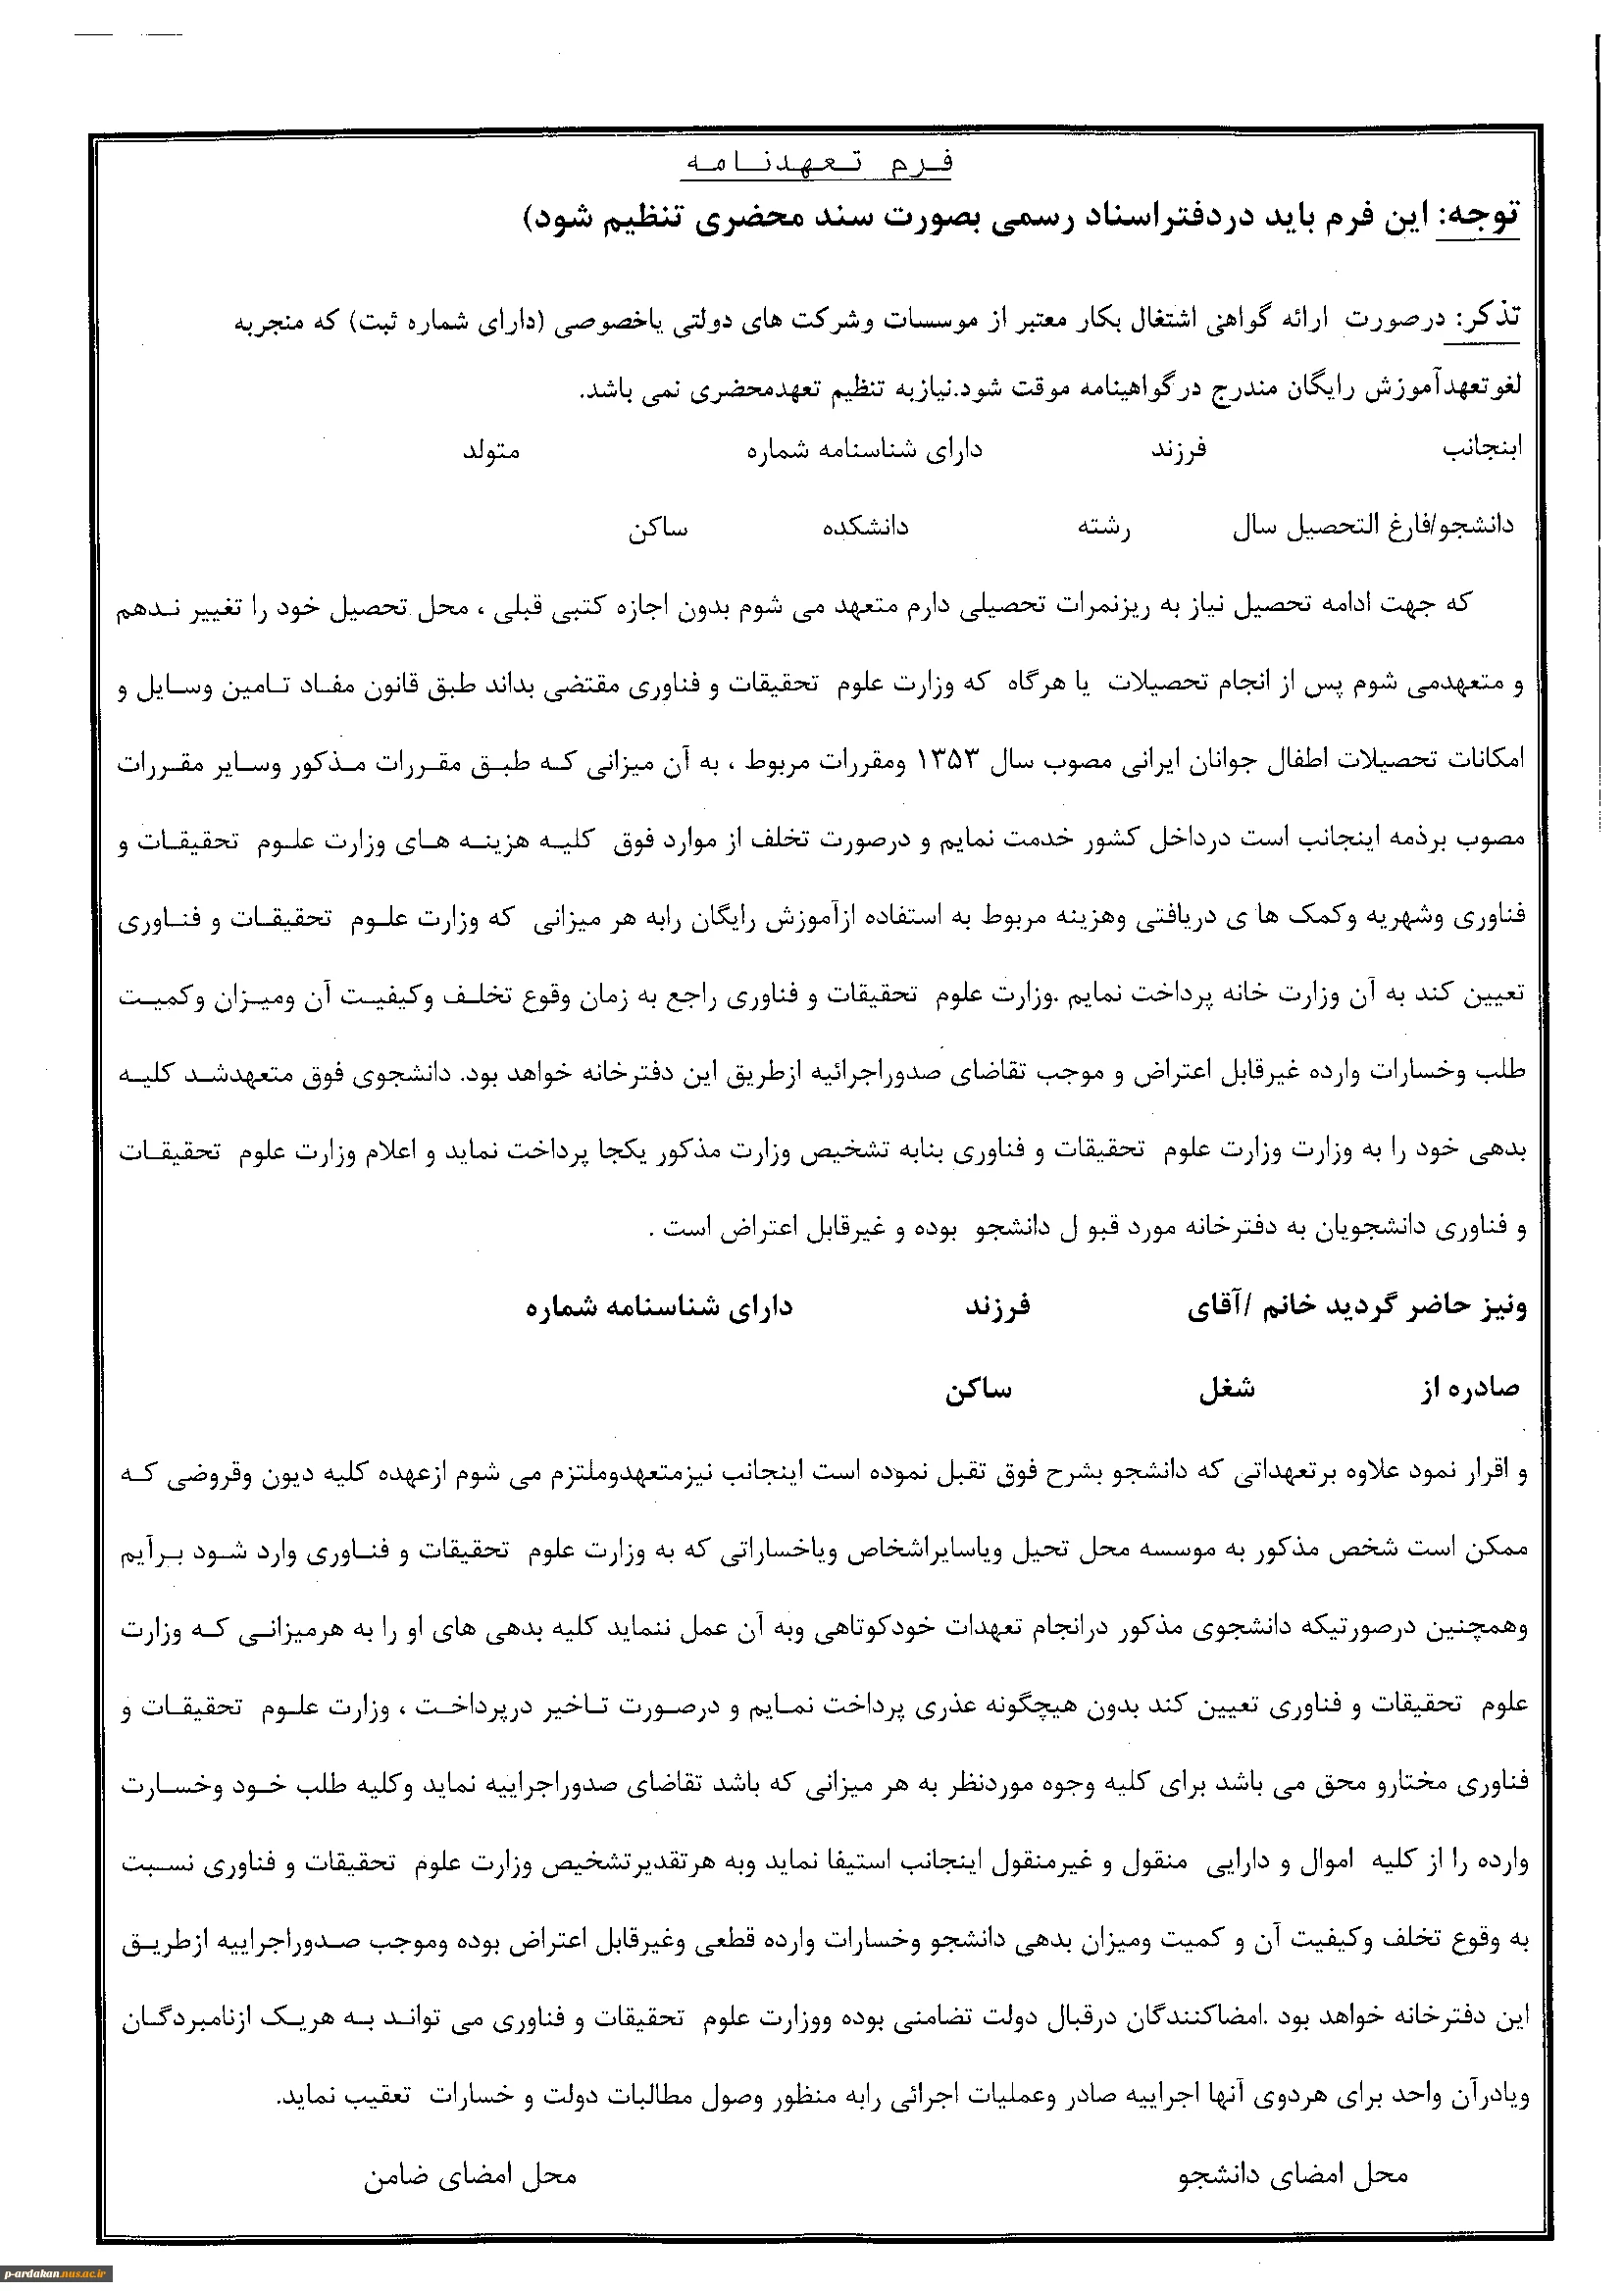 فرم تعهدنامه
توجه: این فرم باید دردفتراسناد رسمی بصورت سند محضری تنظیم شود)
تذکر: درصورت ارائه گواهی اشتغال بکار معتبر از موسسات وشرکت های دولتی یاخصوصی (دارای شماره ثبت) که منجربه
لغوتعهدآموزش رایگان مندرج درگواهینامه موقت شود.نیازبه تنظیم تعهدمحضری نمی باشد.
اینجانب فرزند دارای شناسنامه شماره متولد
دانشجو/فارغ التحصیل سال رشته دانشکده ساکن
که جهت ادامه تحصیل نیاز به ریزنمرات تحصیلی دارم متعهد می شوم بدون اجازه کتبی قبلی ، محل تحصیل خود را تغییر ندهم
و متعهدمی شوم پس از انجام تحصیلات یا هرگاه که وزارت علوم تحقیقات و فناوری مقتضی بداند طبق قانون مفاد تامین وسایل و
امکانات تحصیلات اطفال جوانان ایرانی مصوب سال ۱۳۵۳ ومقررات مربوط ، به آن میزانی که طبق مقررات مذکور وسایر مقررات
مصوب برذمه اینجانب است درداخل کشور خدمت نمایم و درصورت تخلف از موارد فوق کلیه هزینه های وزارت علوم تحقیقات و
فناوری وشهریه وکمک ها ی دریافتی وهزینه مربوط به استفاده ازآموزش رایگان رابه هر میزانی که وزارت علوم تحقیقات و فناوری
تعیین کند به آن وزارت خانه پرداخت نمایم .وزارت علوم تحقیقات و فناوری راجع به زمان وقوع تخلف وکیفیت آن ومیزان وکمیت
طلب وخسارات وارده غیرقابل اعتراض و موجب تقاضای صدوراجرائیه ازطریق این دفترخانه خواهد بود. دانشجوی فوق متعهدشد کلیه
بدهی خود را به وزارت وزارت علوم تحقیقات و فناوری بنابه تشخیص وزارت مذکور یکجا پرداخت نماید و اعلام وزارت علوم تحقیقات
و فناوری دانشجویان به دفترخانه مورد قبو ل دانشجو بوده و غیرقابل اعتراض است .
ونیز حاضر گردید خانم /آقای فرزند دارای شناسنامه شماره
صادره از شغل ساکن
و اقرار نمود علاوه برتعهداتی که دانشجو بشرح فوق تقبل نموده است اینجانب نیزمتعهدوملتزم می شوم ازعهده کلیه دیون وقروضی که
ممکن است شخص مذکور به موسسه محل تحیل ویاسایراشخاص ویاخساراتی که به وزارت علوم تحقیقات و فناوری وارد شود برآیم
وهمچنین درصورتیکه دانشجوی مذکور درانجام تعهدات خودکوتاهی وبه آن عمل ننماید کلیه بدهی های او را به هرمیزانی که وزارت
علوم تحقیقات و فناوری تعیین کند بدون هیچگونه عذری پرداخت نمایم و درصورت تاخیر درپرداخت ، وزارت علوم تحقیقات و
فناوری مختارو محق می باشد برای کلیه وجوه موردنظر به هر میزانی که باشد تقاضای صدوراجراییه نماید وکلیه طلب خود وخسارت
وارده را از کلیه اموال و دارایی منقول و غیرمنقول اینجانب استیفا نماید وبه هرتقدیرتشخیص وزارت علوم تحقیقات و فناوری نسبت
به وقوع تخلف وکیفیت آن و کمیت ومیزان بدهی دانشجو وخسارات وارده قطعی وغیرقابل اعتراض بوده وموجب صدوراجراییه ازطریق
این دفترخانه خواهد بود .امضاکنندگان درقبال دولت تضامنی بوده ووزارت علوم تحقیقات و فناوری می تواند به هریک ازنامبردگان
ویادرآن واحد برای هردوی آنها اجراییه صادر وعملیات اجرائی رابه منظور وصول مطالبات دولت و خسارات تعقیب نماید.
محل امضای دانشجو محل امضای ضامن
p-ardakan.nus.ac.ir